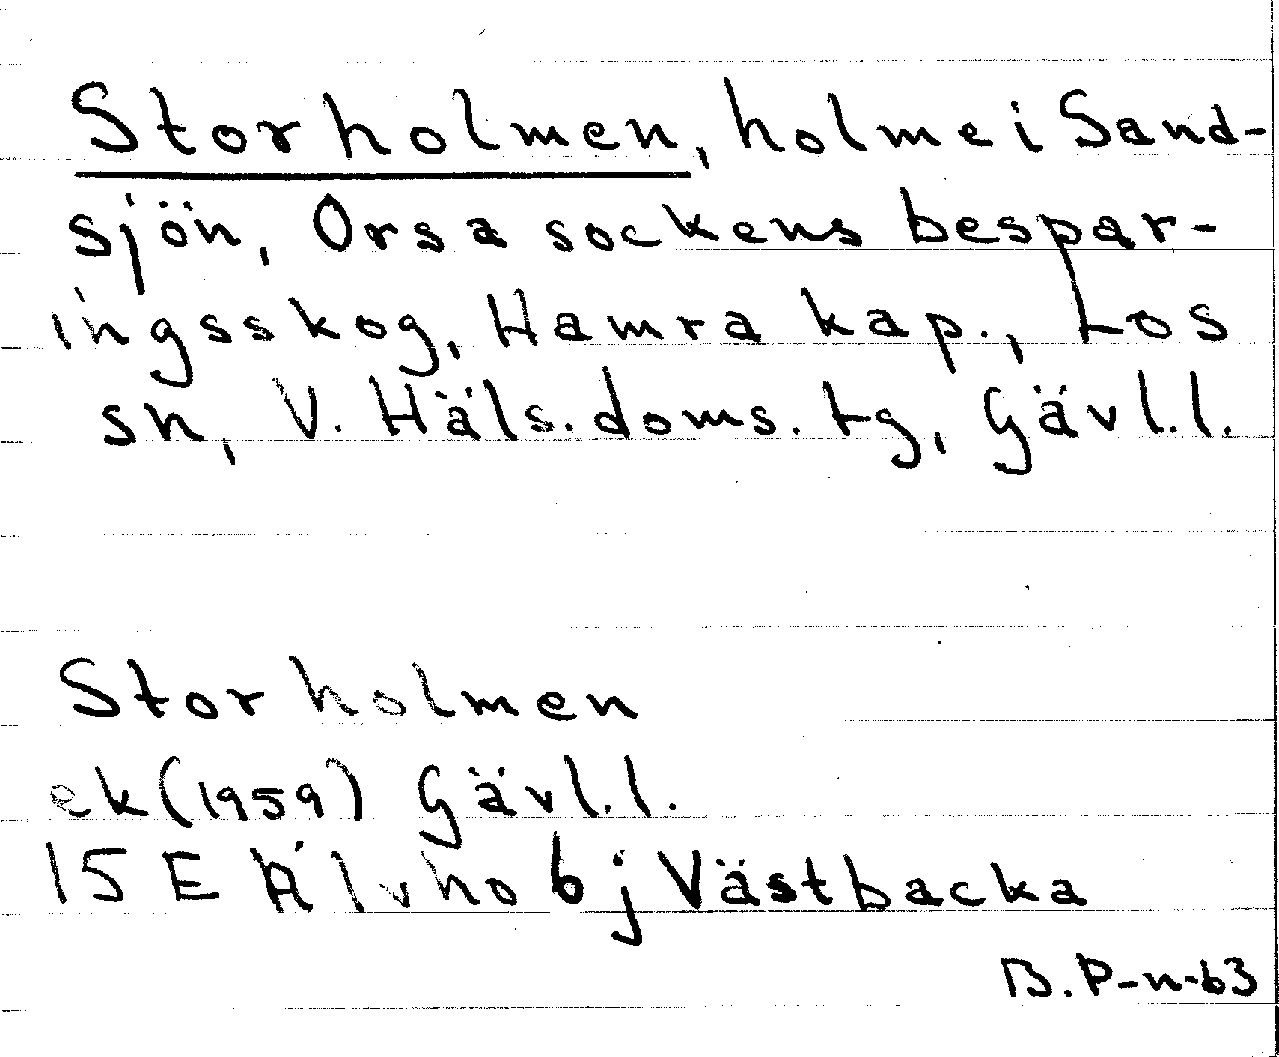 Storholmen, holme i Sand-
sjön, Orsa sockens bespar-
ingsskog, Hamra kap., Los
sn, V. Häls. doms. tg, Gävl.l.
Storholmen
ek (1959) Gävl.l.
15 E Älvho 6j Västbacka
B. P-n-63